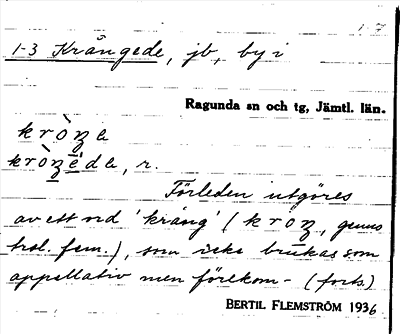 1-7
1-3 Krångede, jb, by i
Ragunda sn och tg, Jämtl. län.
kròŋe
kròŋéde, r.
Förleden utgöres
av ett ord 'krång' (kröŋ, genus
trol. fem.), som icke brukas som
appellativ men förekom- (forts.)
BERTIL FLEMSTRÖM 1936